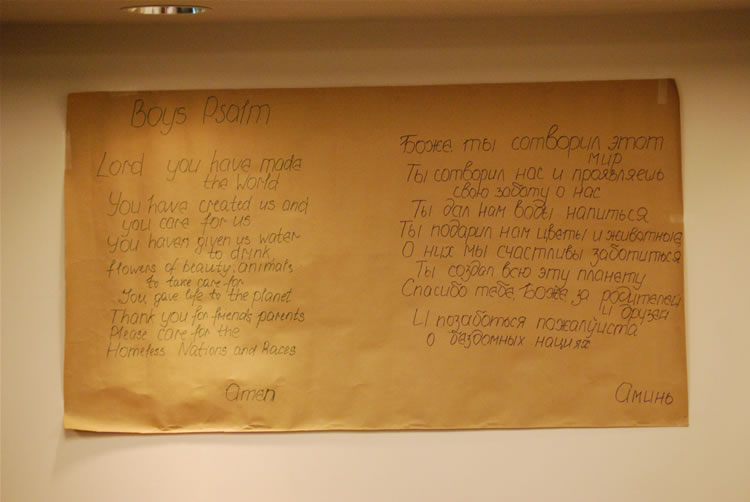 Boys Psalm
Lord you have made
the World
You have created us and
you care for us
You haven given us water
to drink,
flowers of beauty, animals
to take care for
You gave life to the planet
Thank you for friends, parents
Please care for the
Homeless Nations and Races
Amen
Боже ты сотворил этот
мир
Ты сотворил нас и проявляешь
свою заботу о нас
Ты дал нам воды напиться
Ты подарил нам цветы и животные
О них мы счастливы заботиться
Ты создал всю эту планету
Спасибо тебе, Боже за родителей
и друзей
И позаботься пожалуйста
о бездомных нациях
Аминь